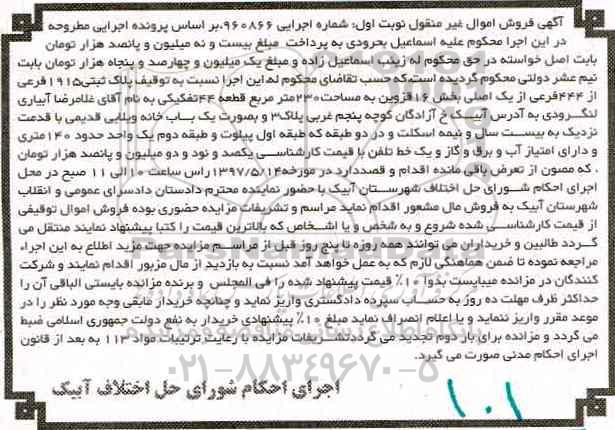 آگهی فروش اموال غیر منقول نوبت اول؛ شماره اجرایی ۹۶۰۸۶۶،بر اساس پرونده اجرایی مطروحه
در این اجرا محکوم علیه اسماعیل بحرودی به پرداخت مبلغ بیست و نه میلیون و پانصد هزار تومان
بابت اصل خواسته در حق محکوم له زینب اسماعیل زاده و مبلغ یک میلیون و چهارصد و پنجاه هزار تومان بابت
نیم عشر دولتی محکوم گردیده است،که حسب تقاضای محکوم له،این اجرا نسبت به توقیف پلاک ثبتی۱۹۱۵فرعی
از ۴۴۴فرعی از یک اصلی بخش ۱۶قزوین به مساحت۲۳۰متر مربع قطعه ۴۴تفکیکی به نام آقای غلامرضا آبیاری
لنگرودی به آدرس آبیک خ آزادگان کوچه پنجم غربی پلاک۳ و بصورت یک باب خانه ویلایی قدیمی با قدمت
نزدیک به بیست سال و نیمه اسکلت و در دو طبقه که طبقه اول پیلوت و طبقه دوم یک واحد حدود ۱۴۰متری
و دارای امتیاز آب و برق و گاز و یک خط تلفن با قیمت کارشناسی یکصد و نود و دو میلیون و پانصد هزار تومان
، که مصون از تعرض باقی مانده اقدام و قصددارد در مورخه۱۳۹۷/۵/۱۴راس ساعت ۱۰الی ۱۱ صبح در محل
اجرای احکام شورای حل اختلاف شهرستان آبیک با حضور نماینده محترم دادستان دادسرای عمومی و انقلاب
شهرستان آبیک به فروش مال مشعور اقدام نماید مراسم و تشریفات مزایده حضوری بوده فروش اموال توقیفی
از قیمت کارشناسی شده شروع و به شخص و یا اشخاص که بالاترین قیمت را کتبا پیشنهاد نمایند منتقل می
گردد طالبین و خریداران می توانند همه روزه تا پنج روز قبل از مراسم مزایده جهت مزید اطلاع به این اجراء
مراجعه نموده تا ضمن هماهنگی لازم که به عمل خواهد آمد نسبت به بازدید از مال مزبور اقدام نمایند و شرکت
کنندگان در مزایده میبایست بدوا ۱۰٪ قیمت پیشنهاد شده را فی المجلس و برنده مزایده بایستی الباقی آن را
حداکثر ظرف مهلت ده روز به حساب سپرده دادگستری واریز نماید و چنانچه خریدار مابقی وجه مورد نظر را در
موعد مقرر واریز ننماید و یا اعلام انصراف نماید مبلغ ۱۰٪ پیشنهادی خریدار به نفع دولت جمهوری اسلامی ضبط
می گردد و مزایده برای بار دوم تجدید می گردد.تشریفات مزایده با رعایت ترتیبات مواد ۱۱۳ به بعد از قانون
اجرای احکام مدنی صورت می گیرد.
۰۲۱-۸۸۳۴۹۶۷۰-۵
اجرای احکام شورای حل اختلاف آبیک
۱۰۱